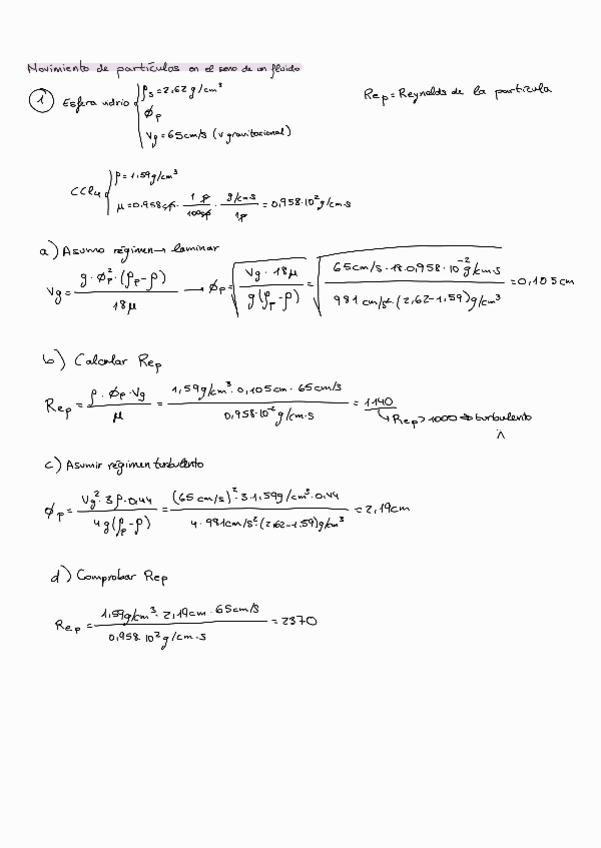 Movimiento de partículas en el seno de un fluido
① Esfera vidrio { ρs = 2,62 g/cm³
φp
Vg = 65 cm/s (v gravitacional)
Rep = Reynolds de la partícula
CCl4 { ρ = 1,59 g/cm³
μ = 0.958 cp · 1 p / 100 cp · g/cm·s / 1p = 0,958·10² g/cm·s
a) Asumo régimen → laminar
Vg = g · φp² · (ρp - ρ) / 18 μ → φp = √(Vg · 18 μ / g(ρp - ρ)) = √(65 cm/s · 18 · 0,958 · 10⁻² g/cm·s / 981 cm/s² · (2,62 - 1,59) g/cm³) = 0,105 cm
b) Calcular Rep
Rep = ρ · φp · Vg / μ = 1,59 g/cm³ · 0,105 cm · 65 cm/s / 0,958·10⁻² g/cm·s = 1140
↳ Rep > 1000 ⇒ turbulento
c) Asumir régimen turbulento
φp = Vg² · 3ρ · 0,44 / 4g(ρp - ρ) = (65 cm/s)² · 3 · 1,59 g/cm³ · 0,44 / 4 · 981 cm/s² · (2,62 - 1,59) g/cm³ = 2,19 cm
d) Comprobar Rep
Rep = 1,59 g/cm³ · 2,19 cm · 65 cm/s / 0,958·10² g/cm·s = 2370